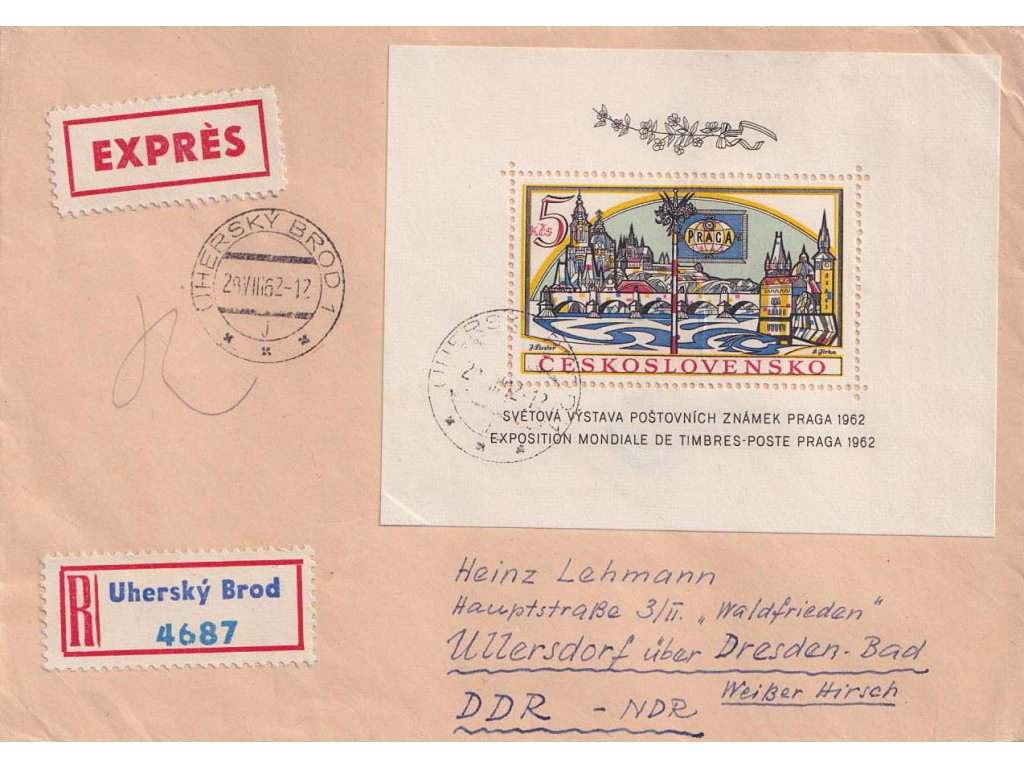 EXPRÈS
UHERSKÝ BROD 1
28.VIII.62-12
i
5
Kčs
PRAGA
1962
J. Liesler
L. Jirka
ČESKOSLOVENSKO
SVĚTOVÁ VÝSTAVA POŠTOVNÍCH ZNÁMEK PRAGA 1962
EXPOSITION MONDIALE DE TIMBRES-POSTE PRAGA 1962
R Uherský Brod
4687
Heinz Lehmann
Hauptstraße 3/II. „Waldfrieden"
Ullersdorf über Dresden-Bad
Weißer Hirsch
DDR - NDR